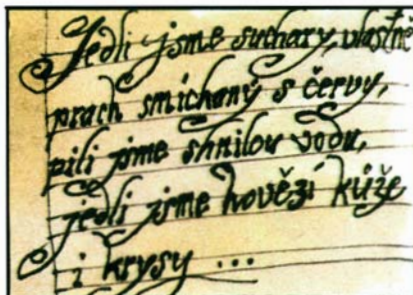 Jedli jsme suchary, vlastně
prach smíchaný s červy,
pili jsme shnilou vodu,
jedli jsme hovězí kůže
i krysy ...